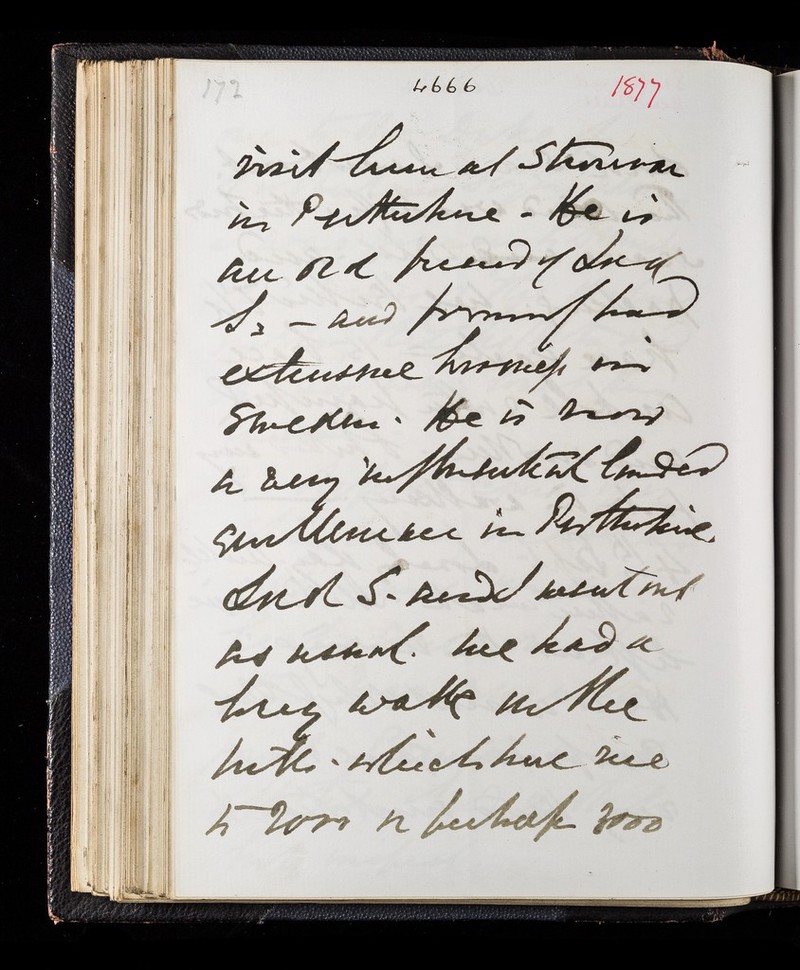 172 4666 1877
visit him at Stronvar
in Perthshire - He is
an old friend of Lord
S. - and formerly had
extensive business in
Sweden. He is now
a very influential landed
gentleman in Perthshire.
Lord S. and I went out
as usual. We had a
long walk in the
hills - which here rise
to 2000 or perhaps 3000